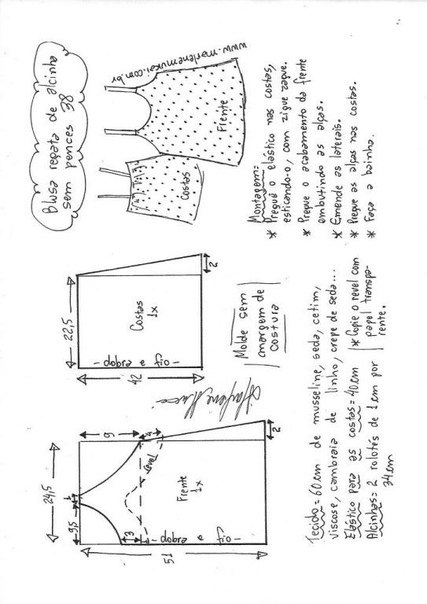 Blusa regata de alcinha
sem pences 38
www.marlenemukai.com.br
Frente
Costas
Montagem:
* Pregue o elástico nas costas,
esticando-o, com zigue zague.
* Pregue o acabamento da frente
embutindo as alças.
* Emende as laterais.
* Pregue as alças nas costas.
* Faça a bainha.
22,5
2
Costas
1x
- dobra e fio -
42
Molde sem
margem de
costura
24,5
9
4
1
9,5
3
Revel
2
Frente
1x
- dobra e fio -
51
Tecido = 60cm de musseline, seda, cetim,
viscose, cambraia de linho, crepe de seda...
Elástico para as costas = 40cm
Alcinhas = 2 rolotês de 1cm por
34cm
* Copie o revel com
papel transpa-
rente.